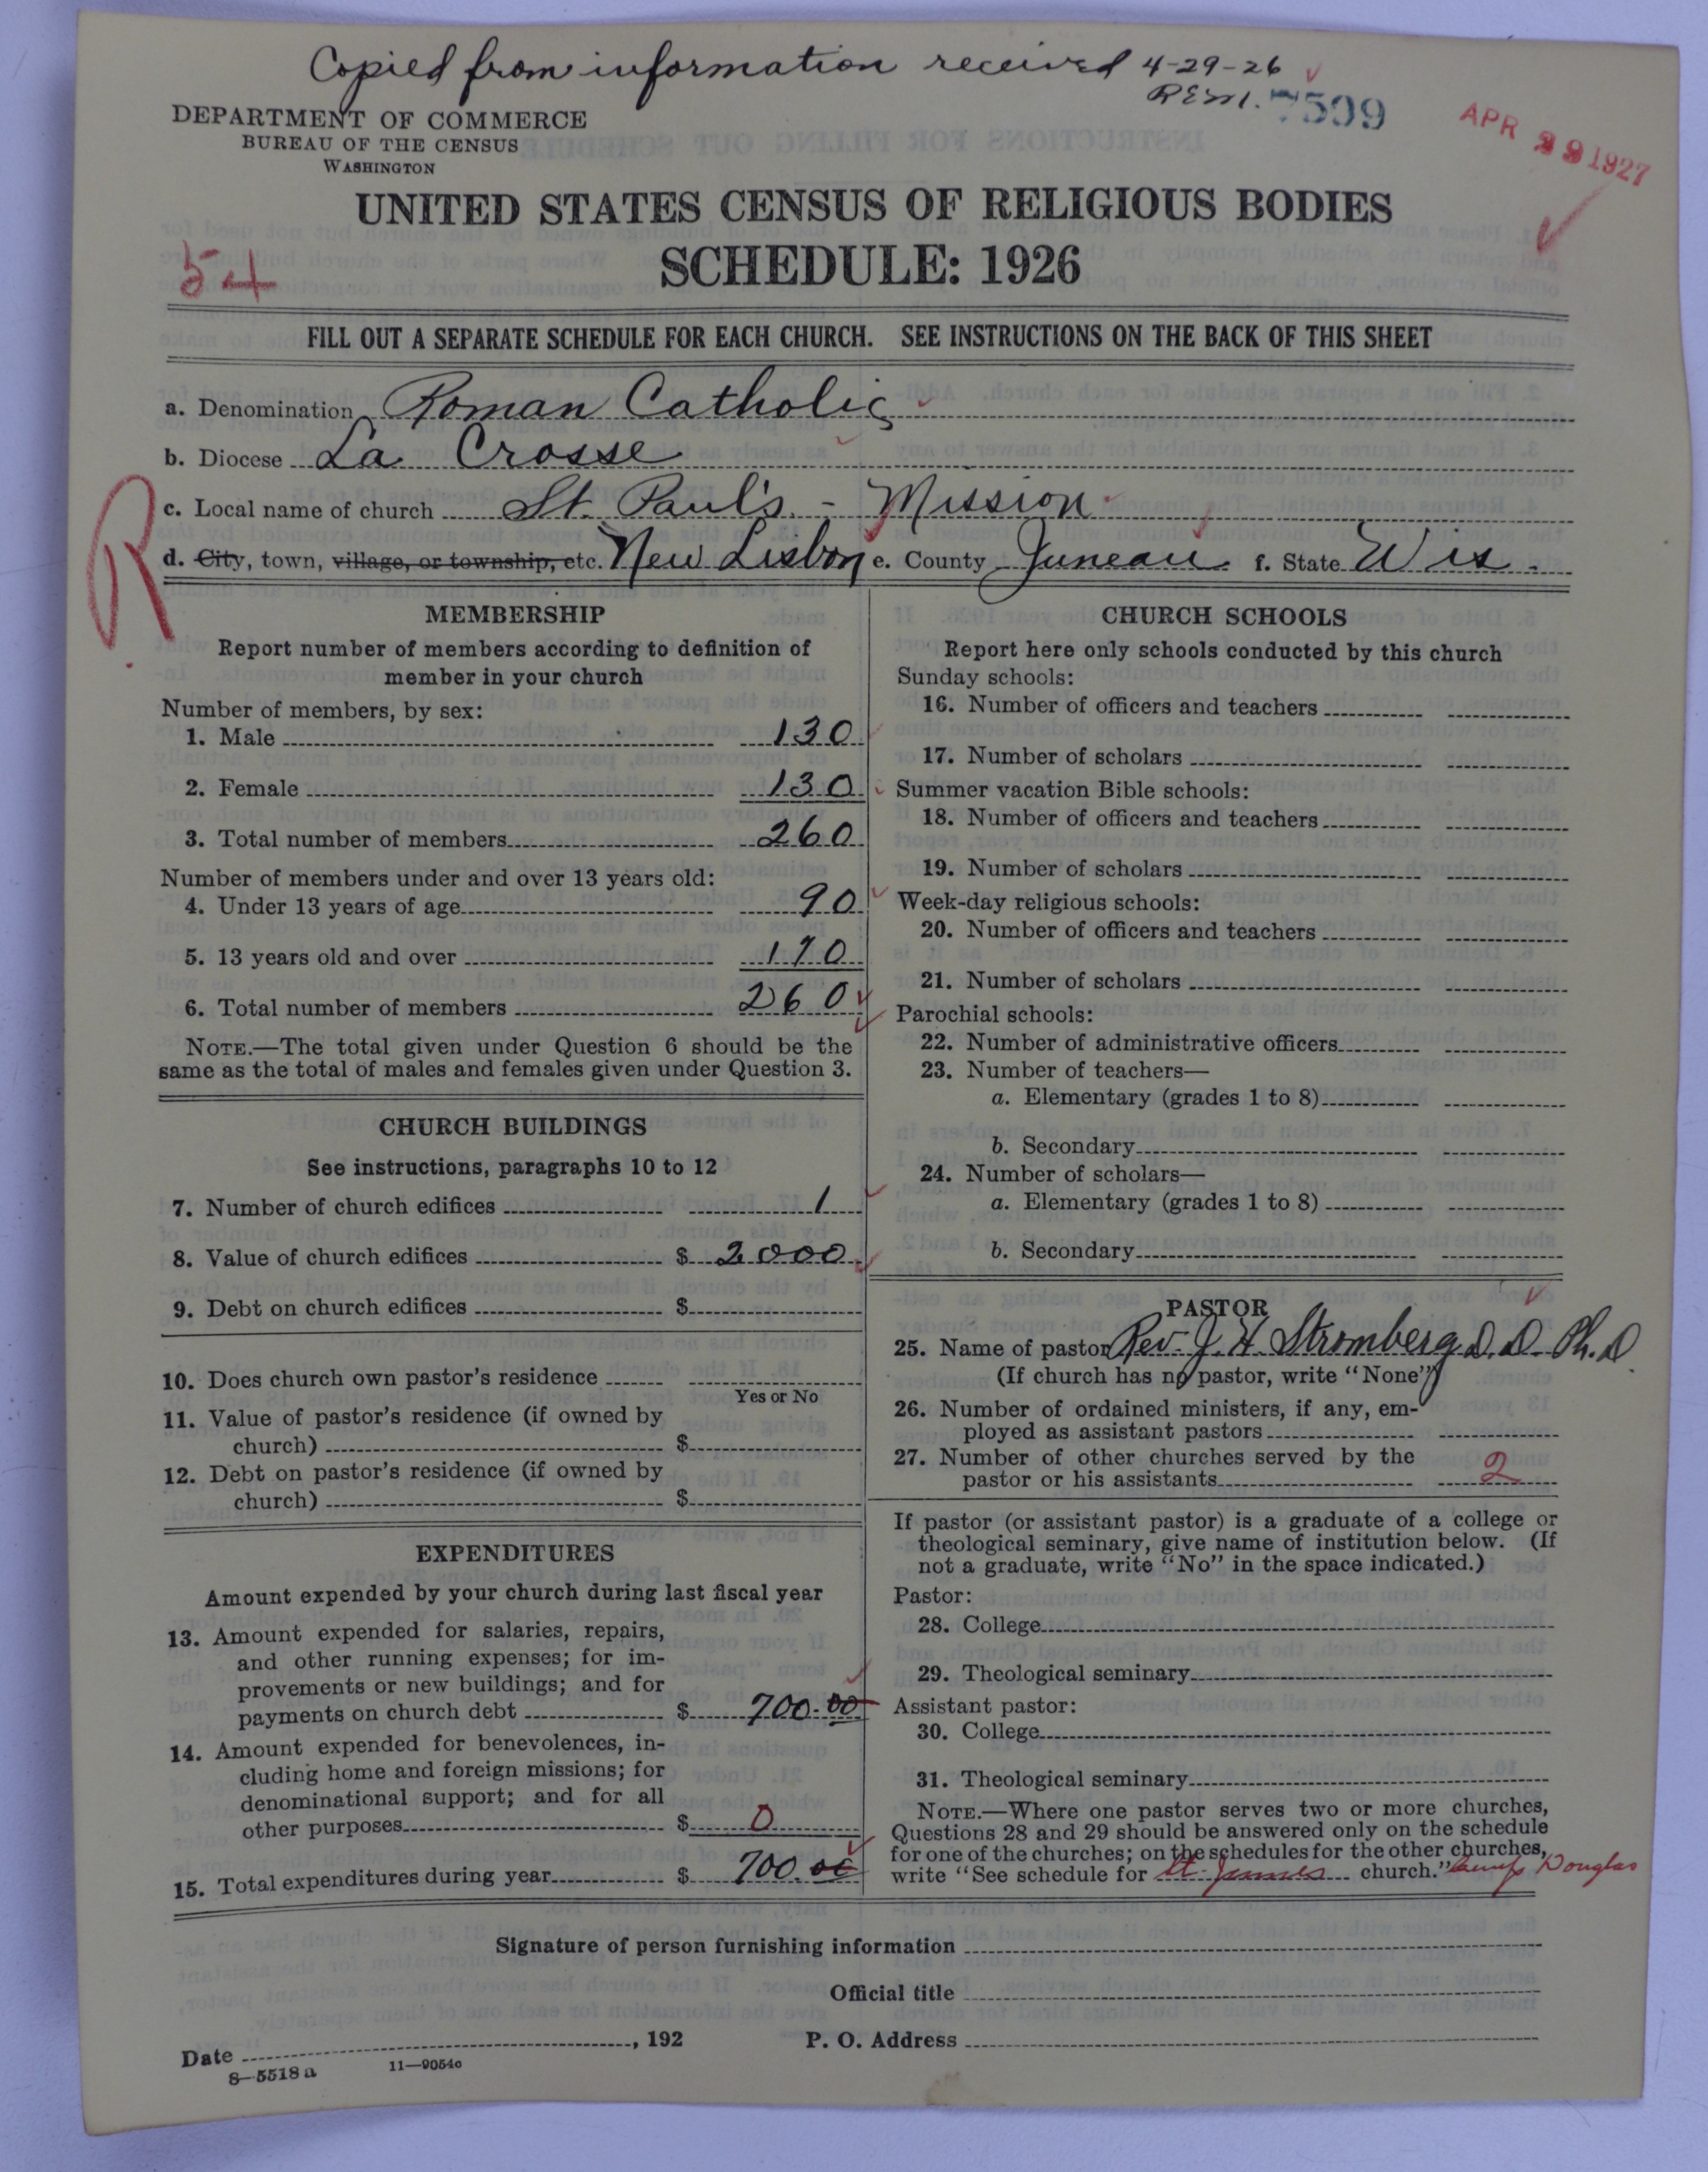 Copied from information received 4-29-26
REM. 7599
APR 29 1927
DEPARTMENT OF COMMERCE
BUREAU OF THE CENSUS
WASHINGTON
UNITED STATES CENSUS OF RELIGIOUS BODIES
SCHEDULE: 1926
54
FILL OUT A SEPARATE SCHEDULE FOR EACH CHURCH. SEE INSTRUCTIONS ON THE BACK OF THIS SHEET
a. Denomination Roman Catholic
b. Diocese La Crosse
R
c. Local name of church St. Paul's - Mission
d. City, town, village, or township, etc. New Lisbon e. County Juneau f. State Wis.
MEMBERSHIP
Report number of members according to definition of
member in your church
Number of members, by sex:
1. Male 130
2. Female 130
3. Total number of members 260
Number of members under and over 13 years old:
4. Under 13 years of age 90
5. 13 years old and over 170
6. Total number of members 260
NOTE.—The total given under Question 6 should be the
same as the total of males and females given under Question 3.
CHURCH BUILDINGS
See instructions, paragraphs 10 to 12
7. Number of church edifices 1
8. Value of church edifices $ 2000
9. Debt on church edifices $
10. Does church own pastor's residence
Yes or No
11. Value of pastor's residence (if owned by
church) $
12. Debt on pastor's residence (if owned by
church) $
EXPENDITURES
Amount expended by your church during last fiscal year
13. Amount expended for salaries, repairs,
and other running expenses; for im-
provements or new buildings; and for
payments on church debt $ 700.00
14. Amount expended for benevolences, in-
cluding home and foreign missions; for
denominational support; and for all
other purposes $ 0
15. Total expenditures during year $ 700.00
CHURCH SCHOOLS
Report here only schools conducted by this church
Sunday schools:
16. Number of officers and teachers
17. Number of scholars
Summer vacation Bible schools:
18. Number of officers and teachers
19. Number of scholars
Week-day religious schools:
20. Number of officers and teachers
21. Number of scholars
Parochial schools:
22. Number of administrative officers
23. Number of teachers—
a. Elementary (grades 1 to 8)
b. Secondary
24. Number of scholars—
a. Elementary (grades 1 to 8)
b. Secondary
PASTOR
25. Name of pastor Rev. J. H. Stromberg D.D. Ph.D.
(If church has no pastor, write "None")
26. Number of ordained ministers, if any, em-
ployed as assistant pastors
27. Number of other churches served by the
pastor or his assistants 2
If pastor (or assistant pastor) is a graduate of a college or
theological seminary, give name of institution below. (If
not a graduate, write "No" in the space indicated.)
Pastor:
28. College
29. Theological seminary
Assistant pastor:
30. College
31. Theological seminary
NOTE.—Where one pastor serves two or more churches,
Questions 28 and 29 should be answered only on the schedule
for one of the churches; on the schedules for the other churches,
write "See schedule for St. James church." Camp Douglas
Signature of person furnishing information
Official title
Date , 192 P. O. Address
8—5518a 11—9054c